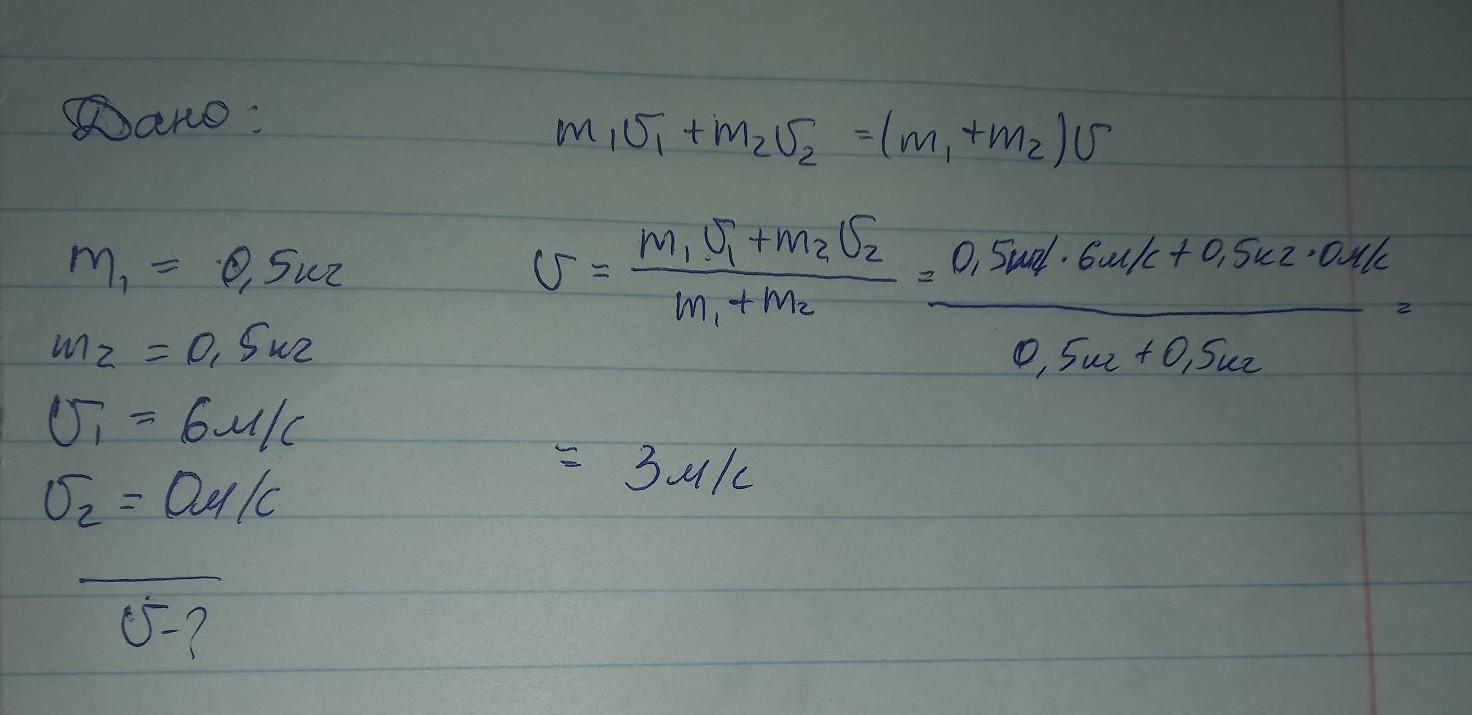 Дано:
m₁ = 0,5кг
m₂ = 0,5кг
υ₁ = 6м/с
υ₂ = 0м/с
υ-?
m₁υ₁ + m₂υ₂ = (m₁ + m₂)υ
υ = (m₁υ₁ + m₂υ₂)/(m₁ + m₂) = (0,5кг · 6м/с + 0,5кг · 0м/с)/(0,5кг + 0,5кг) =
= 3м/с